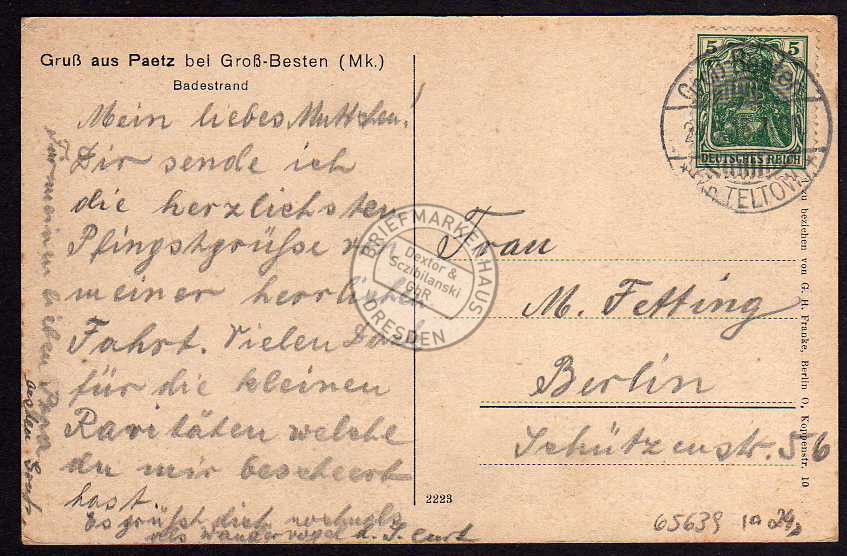 Gruß aus Paetz bei Groß-Besten (Mk.)
Badestrand
Mein liebes Muttchen!
Dir sende ich
die herzlichsten
Pfingstgrüße von
meiner herrlichen
Fahrt. Vielen Dank
für die kleinen
Raritäten welche
du mir bescheert
hast.
Es grüßt dich nochmals
Curt
Für meinen lieben Papa
besten
5 5
DEUTSCHES REICH
TELTOW
BRIEFMARKENHAUS
Dextor &
Sczibilanski
GbR
DRESDEN
Frau
M. Fetting
Berlin
Schützenstr. 56
zu beziehen von G. H. Franke, Berlin O, Koppenstr. 10
2223
65639